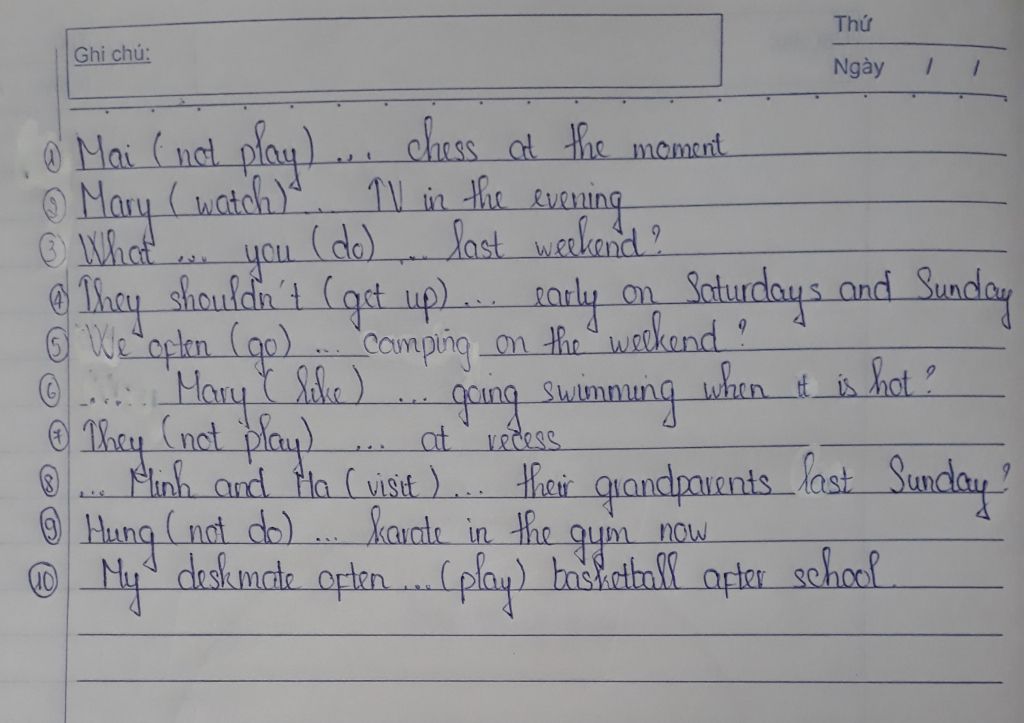 Ghi chú:
Thứ
Ngày / /
① Mai (not play) ... chess at the moment
② Mary (watch) ... TV in the evening
③ What ... you (do) ... last weekend?
④ They shouldn't (get up) ... early on Saturdays and Sunday
⑤ We often (go) ... camping on the weekend?
⑥ ..... Mary (like) ... going swimming when it is hot?
⑦ They (not play) ... at recess
⑧ ... Minh and Ha (visit) ... their grandparents last Sunday?
⑨ Hung (not do) ... karate in the gym now
⑩ My deskmate often ... (play) basketball after school.